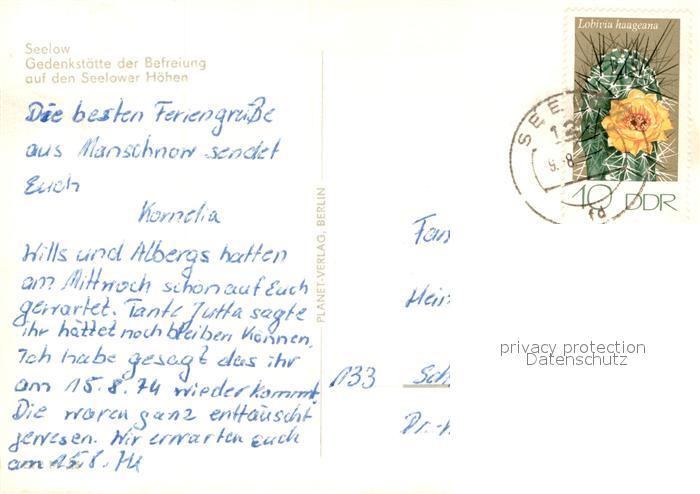 Seelow
Gedenkstätte der Befreiung
auf den Seelower Höhen
Die besten Feriengrüße
aus Manschnow sendet
Euch
Kornelia
Wills und Albergs hatten
am Mittwoch schon auf Euch
gewartet. Tante Jutta sagte
ihr hättet noch bleiben können.
Ich habe gesagt das ihr
am 15.8.74 wieder kommt.
Die waren ganz enttäuscht
gewesen. Wir erwarten euch
am 15.8.74
PLANET-VERLAG, BERLIN
Lobivia haageana
10 DDR
SEE
12
9.-8
Fam
Hein
133 Sch
Dr.-
privacy protection
Datenschutz